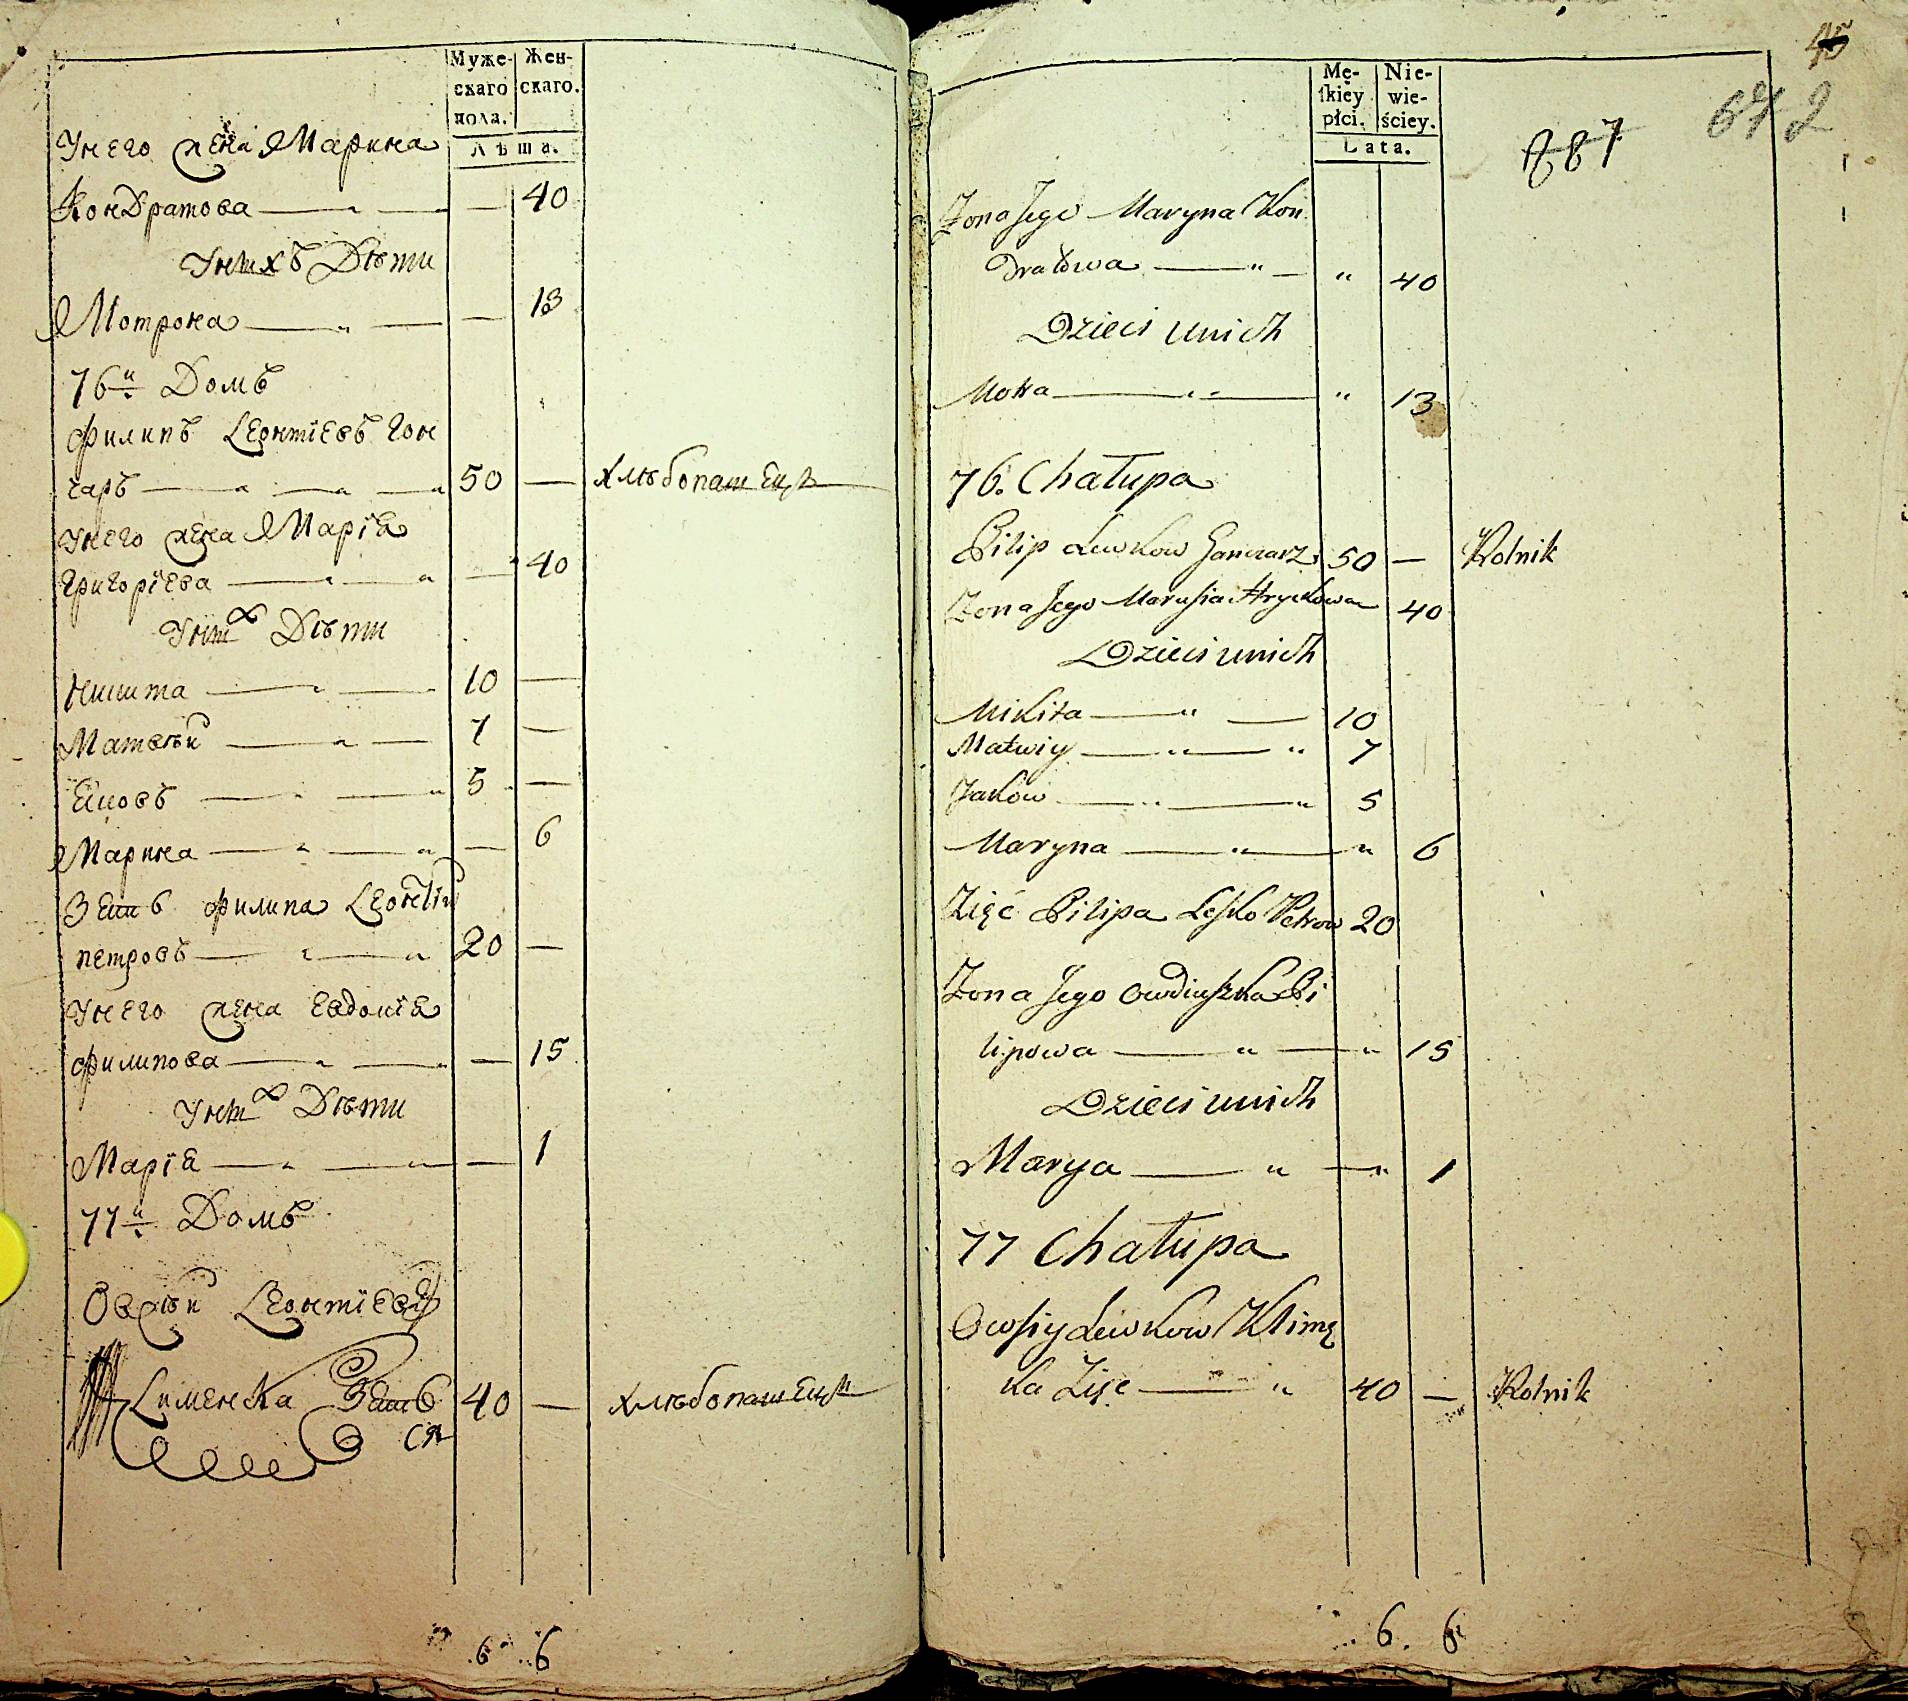 Муже-
скаго
пола.
Жен-
скаго.
Лѣта.
У него жена Марина
Кондратова — — — 40
У нихъ Дѣти
Мотрона — „ — — 13
76й Домъ
Филипъ Леонтїевъ Гон
чаръ — — — 50 — хлѣбопашецъ
У него жена Марїя
Григорїева — — 40
У них Дѣти
Никита — — 10 —
Матвѣй — — 7 —
Яковъ — — 5 —
Марина — — — 6
Зять Филипа Леонтїй
петровъ — — 20 —
У него жена Евдокїя
Филипова — — — 15
У них Дѣти
Марїя — — — 1
77й Домъ
Овсѣй Леонтїевъ
Клименка Зять 40 — хлѣбопашецъ
6 6
45
672
887
Mę-
ſkiey
płci.
Nie-
wie-
ściey.
Lata.
Zona Jego Maryna Kon
dratowa — „ — „ 40
Dzieci u nich
Motra — „ — „ 13
76. Chałupa
Pilip Lewkow Ganczarz 50 — Rolnik
Zona Jego Marusia Hryckowa 40
Dzieci u nich
Mikita — „ — 10
Matwiy — „ — „ 7
Jakow — „ — „ 5
Maryna — „ — „ 6
Zięć Pilipa Leſko Petrow 20
Zona Jego Owdiuszka Pi
lipowa — „ — „ 15
Dzieci u nich
Marya — „ — „ 1
77 Chałupa
Owſiy Lewkow Klimę
ka Zięć — „ 40 — Rolnik
6. 6